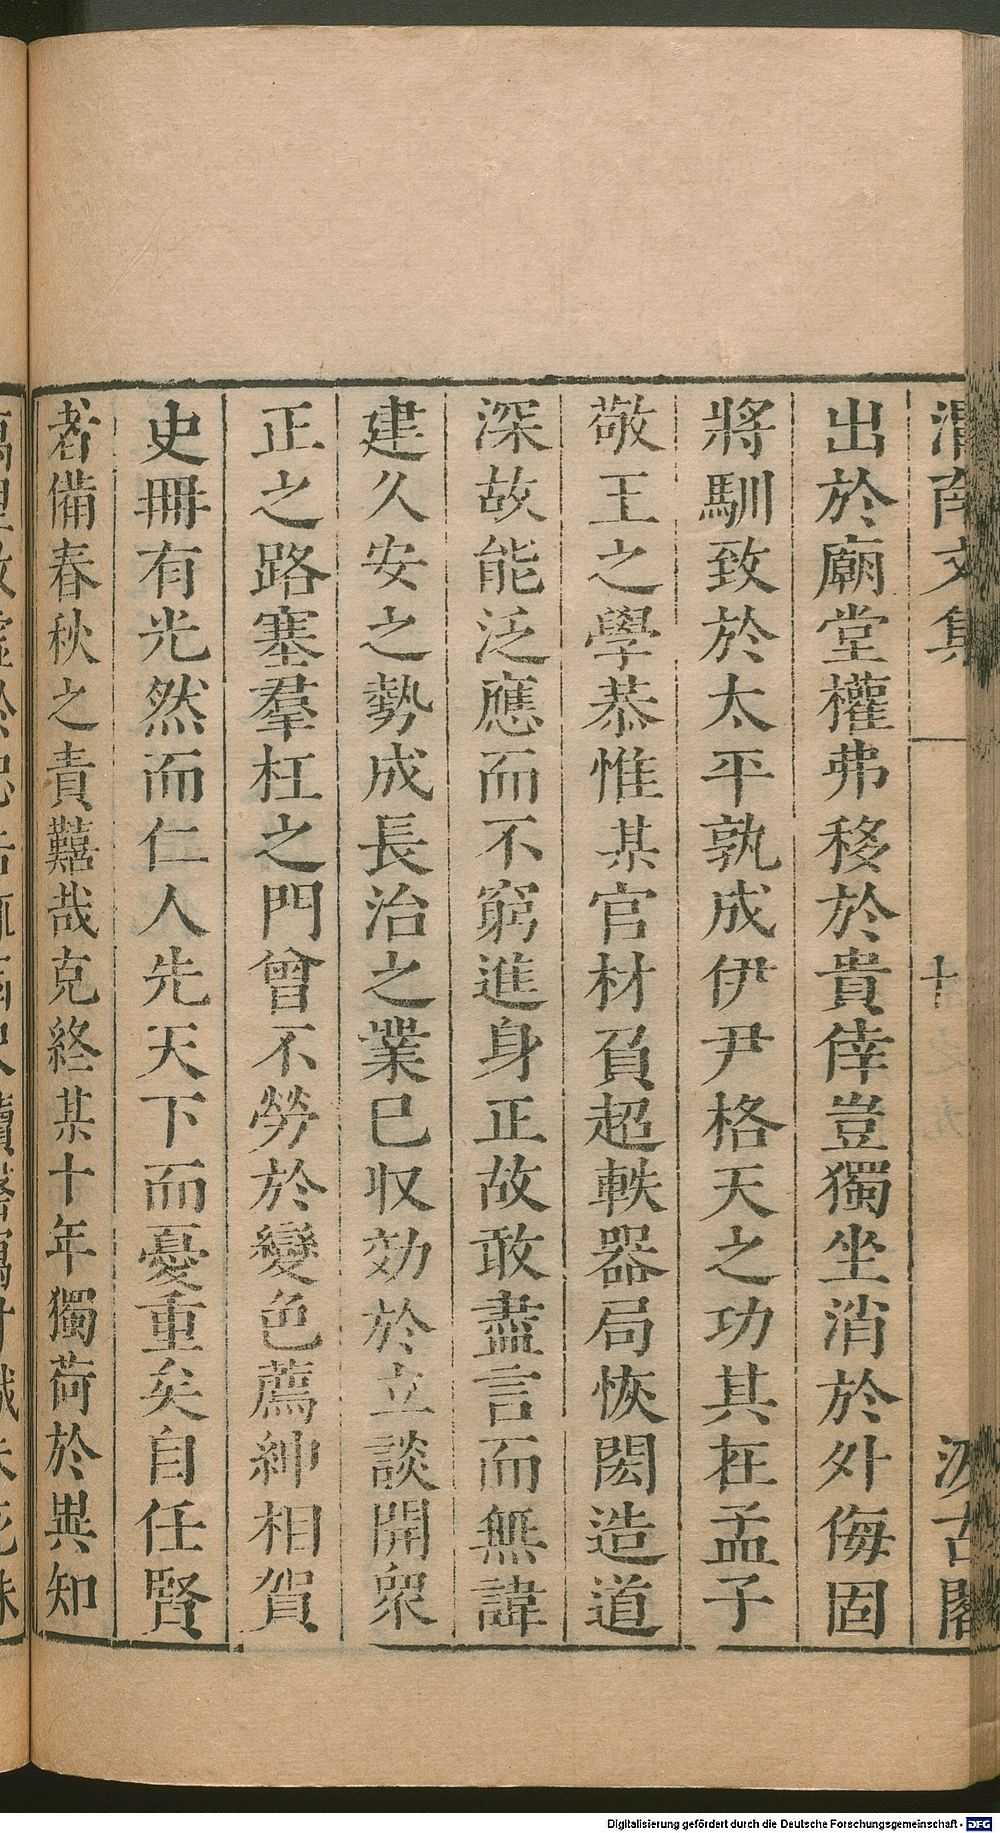 渭南文集 十 汲古閣
出於廟堂權弗移於貴倖豈獨坐消於外侮固
將馴致於太平孰成伊尹格天之功其在孟子
敬王之學恭惟某官材負超軼器局恢閎造道
深故能泛應而不窮進身正故敢盡言而無諱
建久安之勢成長治之業已収効於立談開衆
正之路塞羣枉之門曾不勞於變色薦紳相賀
史冊有光然而仁人先天下而憂重矣自任賢
者備春秋之責囏哉克終某十年獨荷於異知
Digitalisierung gefördert durch die Deutsche Forschungsgemeinschaft - DFG